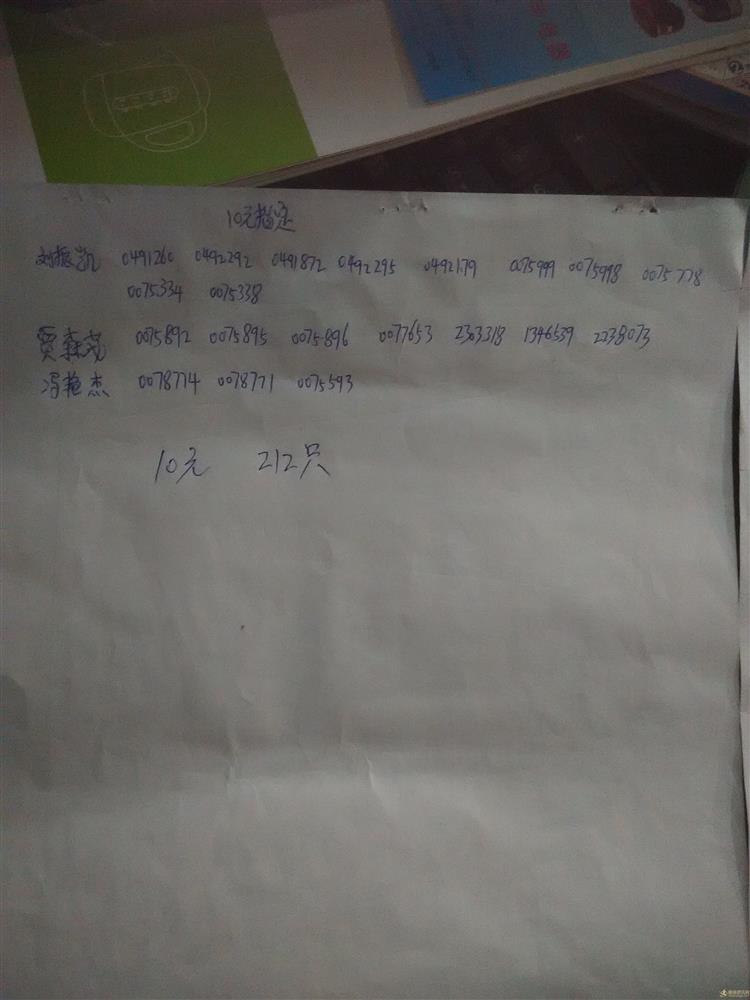 10元指定
刘振凯 0491260 0492292 0491872 0492295 0492179 0075999 0075998 0075778
0075334 0075338
贾森茂 0075892 0075895 0075896 0077653 2303318 1346539 2238073
冯艳杰 0078774 0078771 0075593
10元 212只